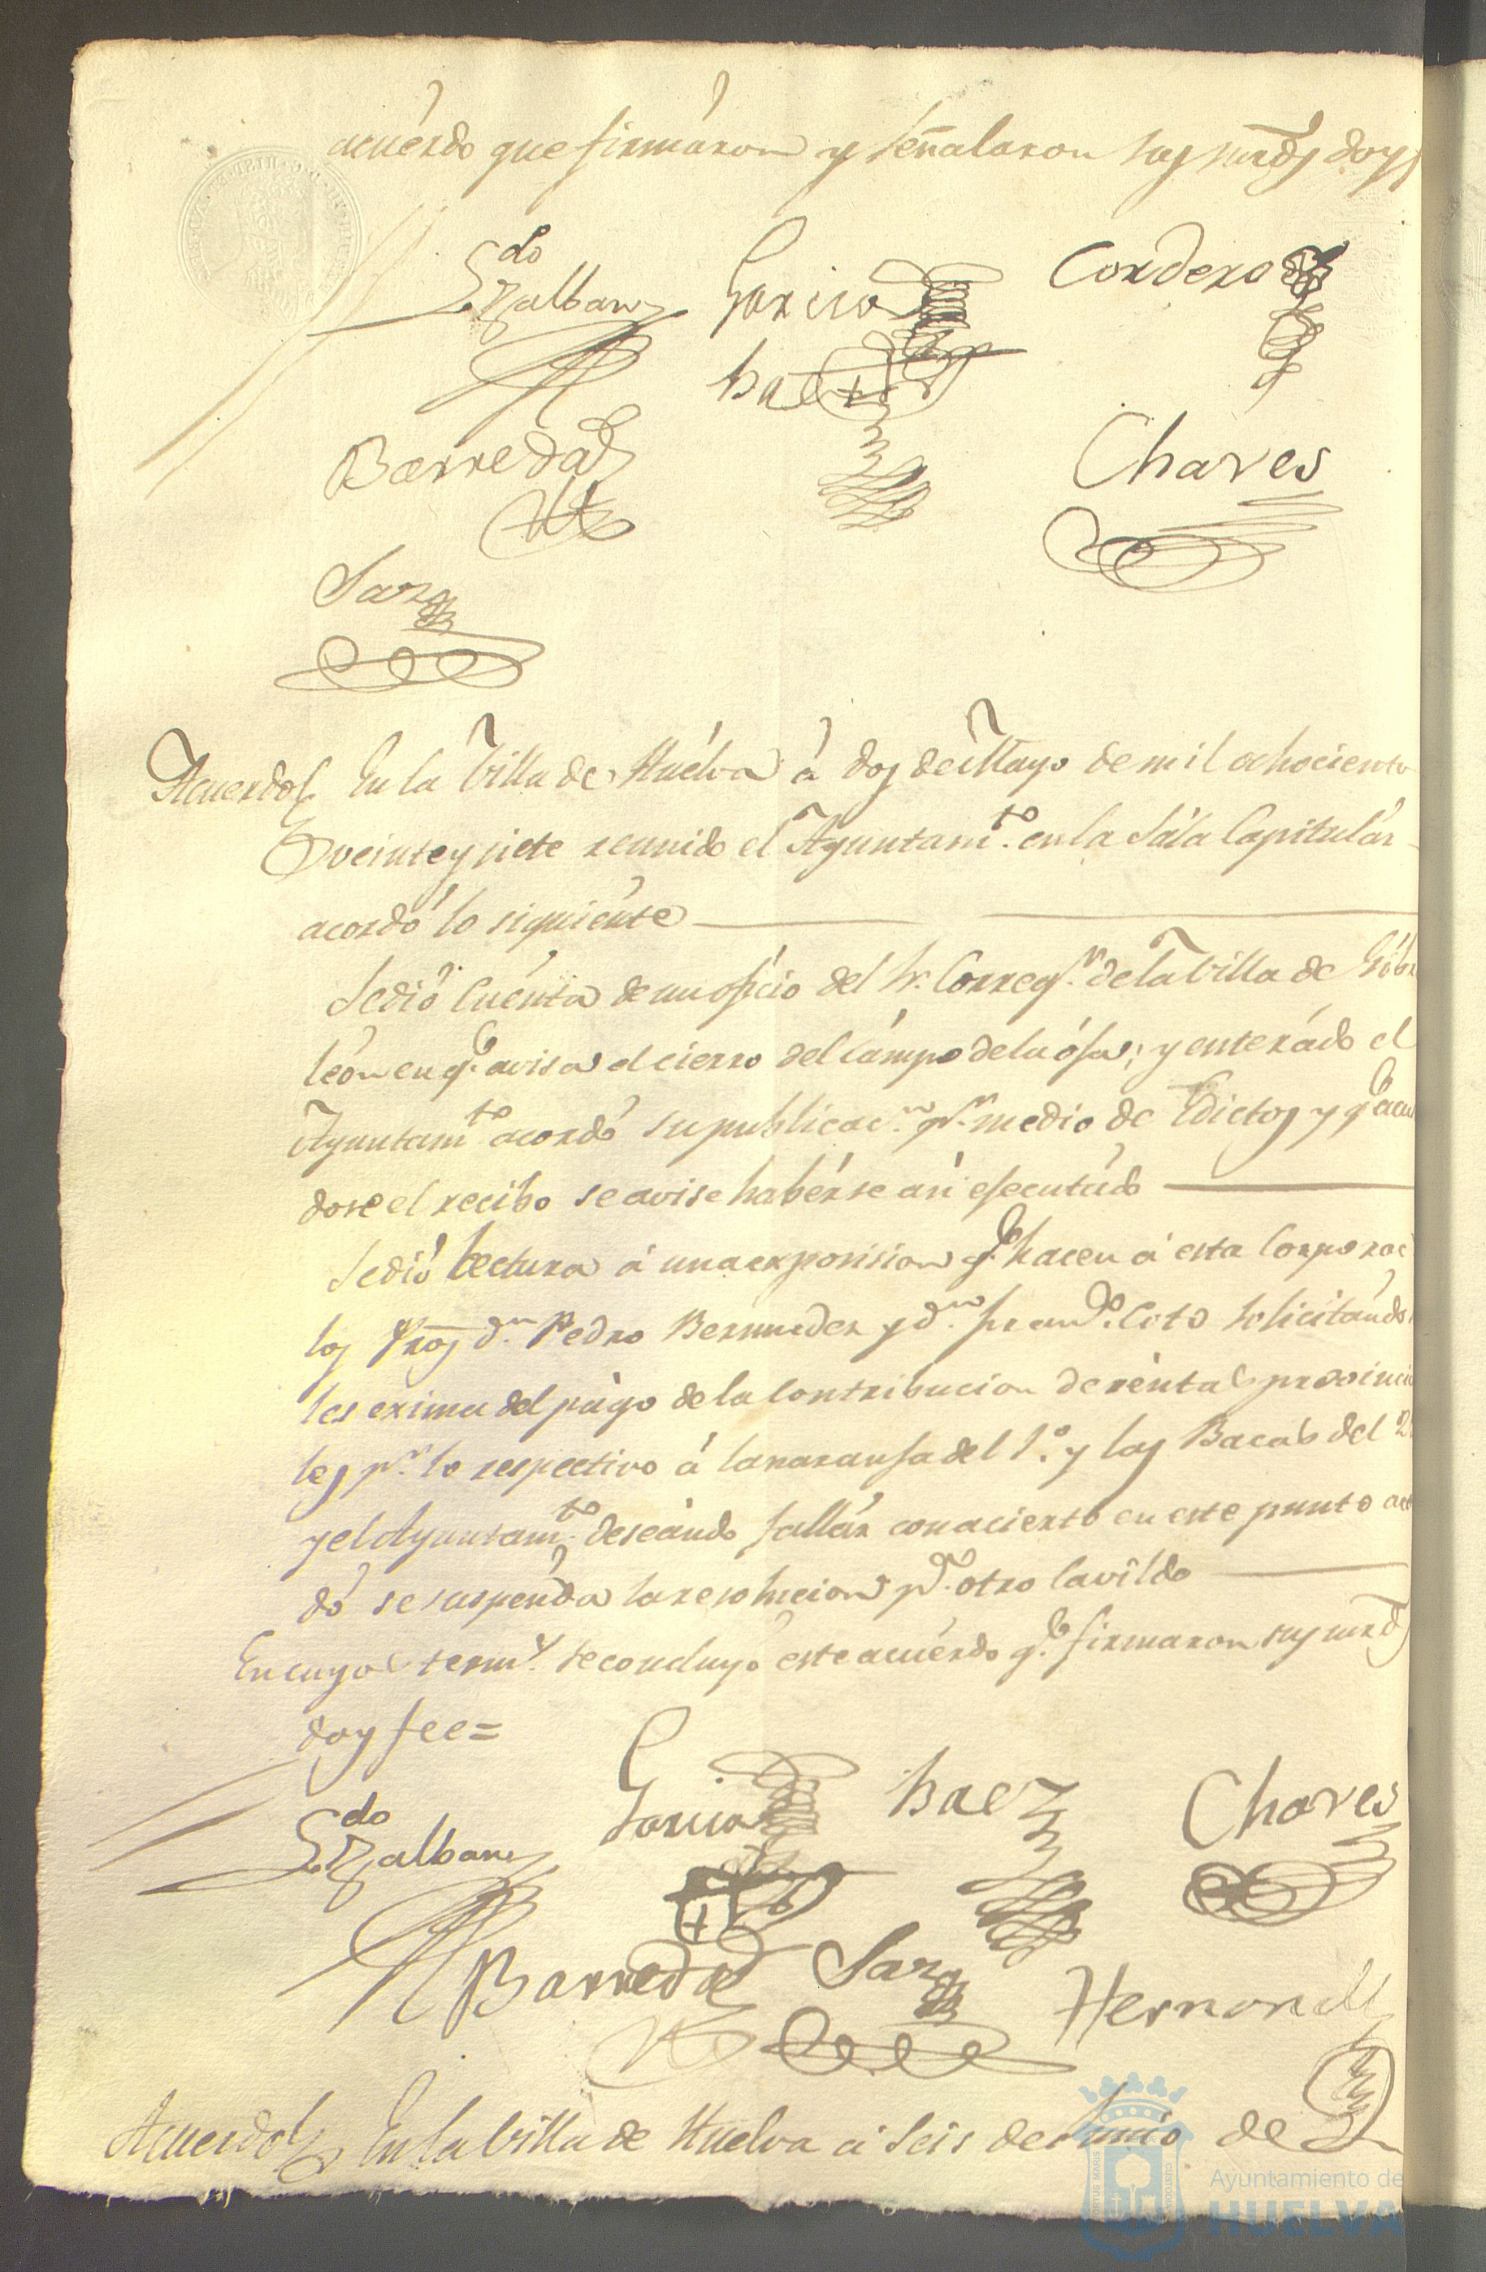 acuérdo que firmáron y señalaron sus mrds doy f
Ldo Zalbany
Garcia
Cordero
Baez
Barreda
Chaves
Saez
Acuerdo En la Villa de Huélva á dos de Mayo de mil ochociento
veinte y siete reunido el Ayuntamto. en la Sála Capitulár
acordó lo siguiénte
Se dió Cuénta de un oficio del Sr. Corregr. de la Villa de Gibra
león en qe. avisa el cierro del Cámpo de la ósa; y enterádo el
Ayuntamto acordó su publicacn. pr. medio de Edictos y qe acu
dose el recibo se avise habérse asi efecutádo
Se dió Lectura á una exposision qe. hacen á esta Corporac
los Pros dn. Pedro Bermudez y dn. Frando. Coto solicitándo
les exima del págo de la Contribucion de réntas provincia
les pr. lo respectivo á la naranfa del 1º. y las Bacas del 2
y el Ayuntamto. deseándo fallár con acierto en este punto acr
dó se suspénda la resolucion pa. otro Cavildo
En cuyos term. se concluyó este acuérdo qe. firmaron sus mrds
doy fee=
Ldo Zalbany
Garcia
Baez
Chaves
Barreda
Saez
Hernand
Acuerdo En la Villa de Huelva á seis de Junio de
Ayuntamiento de
HUELVA